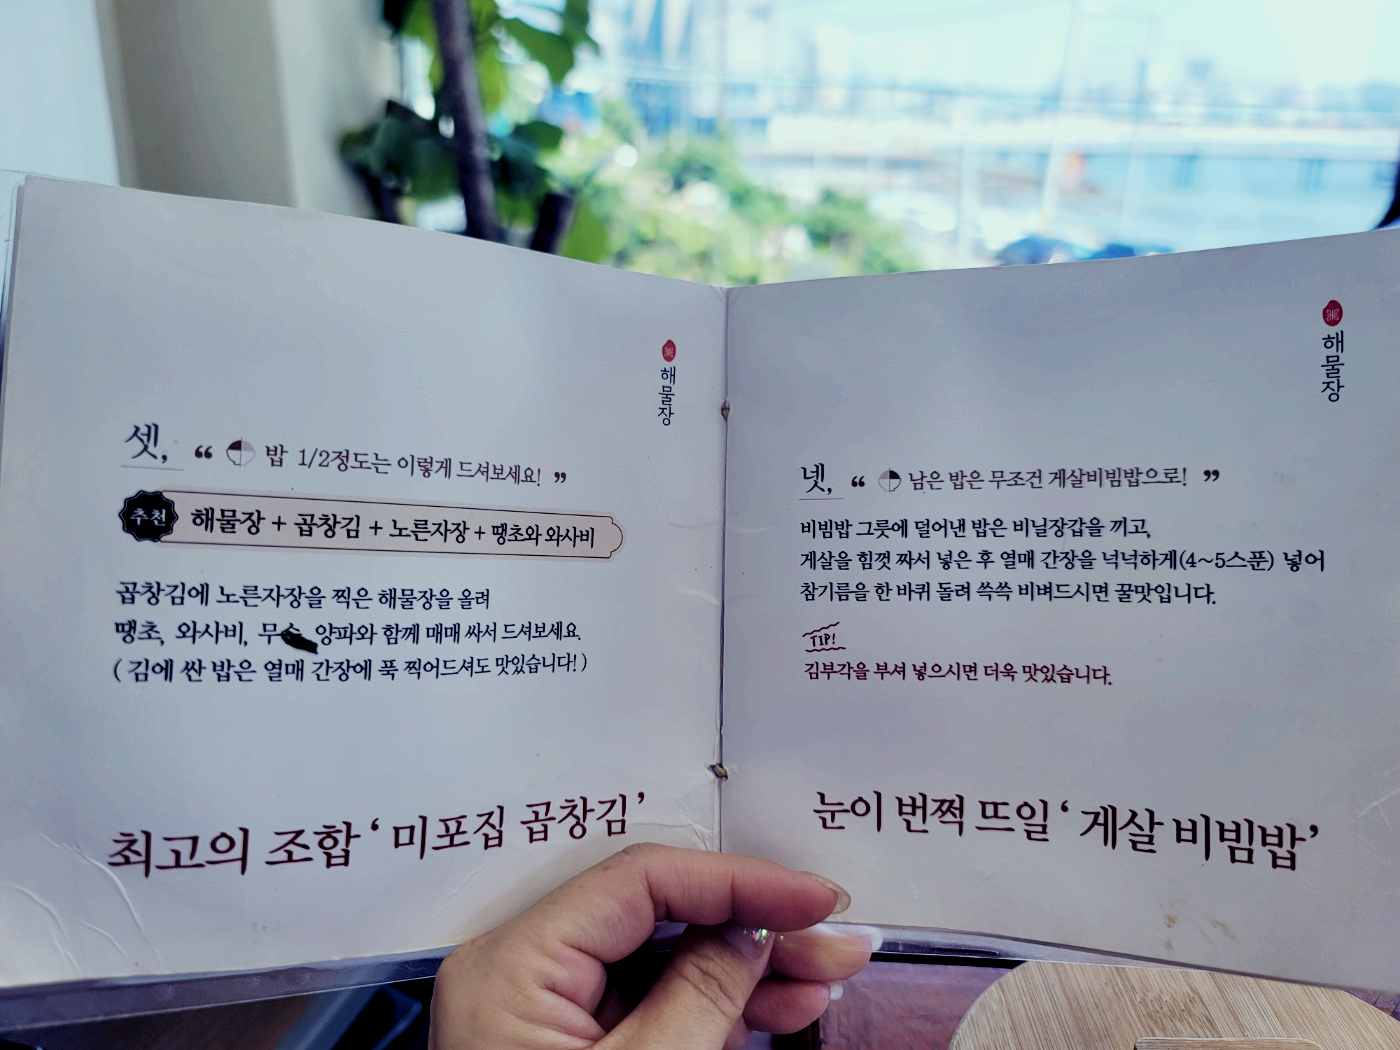 해물장
셋, “ 밥 1/2정도는 이렇게 드셔보세요! ”
추천 해물장 + 곱창김 + 노른자장 + 땡초와 와사비
곱창김에 노른자장을 찍은 해물장을 올려
땡초, 와사비, 양파와 함께 매매 싸서 드셔보세요.
( 김에 싼 밥은 열매 간장에 푹 찍어드셔도 맛있습니다! )
최고의 조합 ‘ 미포집 곱창김 ’
해물장
넷, “ 남은 밥은 무조건 게살비빔밥으로! ”
비빔밥 그릇에 덜어낸 밥은 비닐장갑을 끼고,
게살을 힘껏 짜서 넣은 후 열매 간장을 넉넉하게(4~5스푼) 넣어
참기름을 한 바퀴 돌려 쓱쓱 비벼드시면 꿀맛입니다.
TIP!
김부각을 부셔 넣으시면 더욱 맛있습니다.
눈이 번쩍 뜨일 ‘ 게살 비빔밥 ’